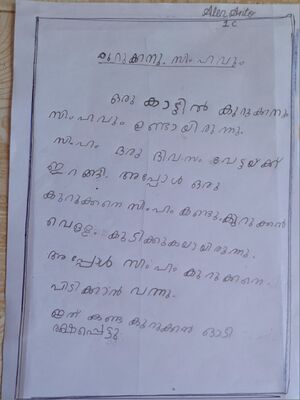 Alen Anto
1C
കുറുക്കനും സിംഹവും
ഒരു കാട്ടിൽ കുറുക്കനും
സിംഹവും ഉണ്ടായിരുന്നു.
സിംഹം ഒരു ദിവസം വേട്ടയ്ക്ക്
ഇറങ്ങി. അപ്പോൾ ഒരു
കുറുക്കനെ സിംഹം കണ്ടു. കുറുക്കൻ
വെള്ളം കുടിക്കുകയായിരുന്നു.
അപ്പോൾ സിംഹം കുറുക്കനെ
പിടിക്കാൻ വന്നു.
ഇത് കണ്ട കുറുക്കൻ ഓടി
രക്ഷപ്പെട്ടു